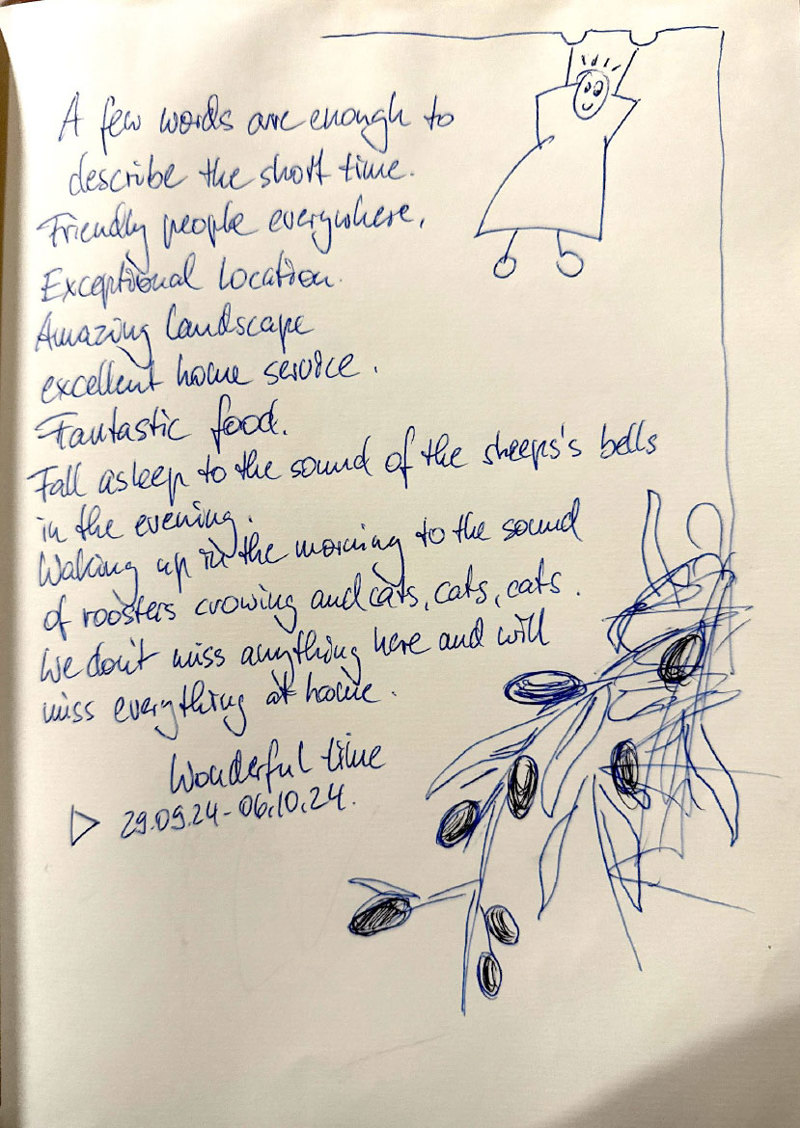 A few words are enough to
describe the short time.
Friendly people everywhere,
Exceptional Location.
Amazing Landscape
excellent home service.
Fantastic food.
Fall asleep to the sound of the sheeps's bells
in the evening.
Waking up in the morning to the sound
of roosters crowing and cats, cats, cats.
We don't miss anything here and will
miss everything at home.
Wonderful time
29.09.24 - 06.10.24.